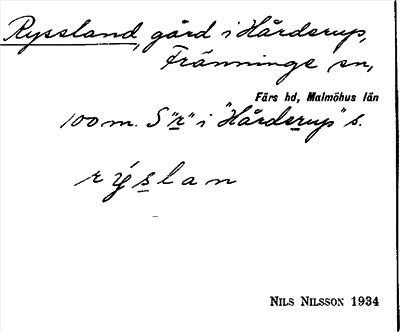 Ryssland, gård i Hårderup,
Fränninge sn,
Färs hd, Malmöhus län
100 m. S "r" i "Hårderup" s.
rýslan
NILS NILSSON 1934